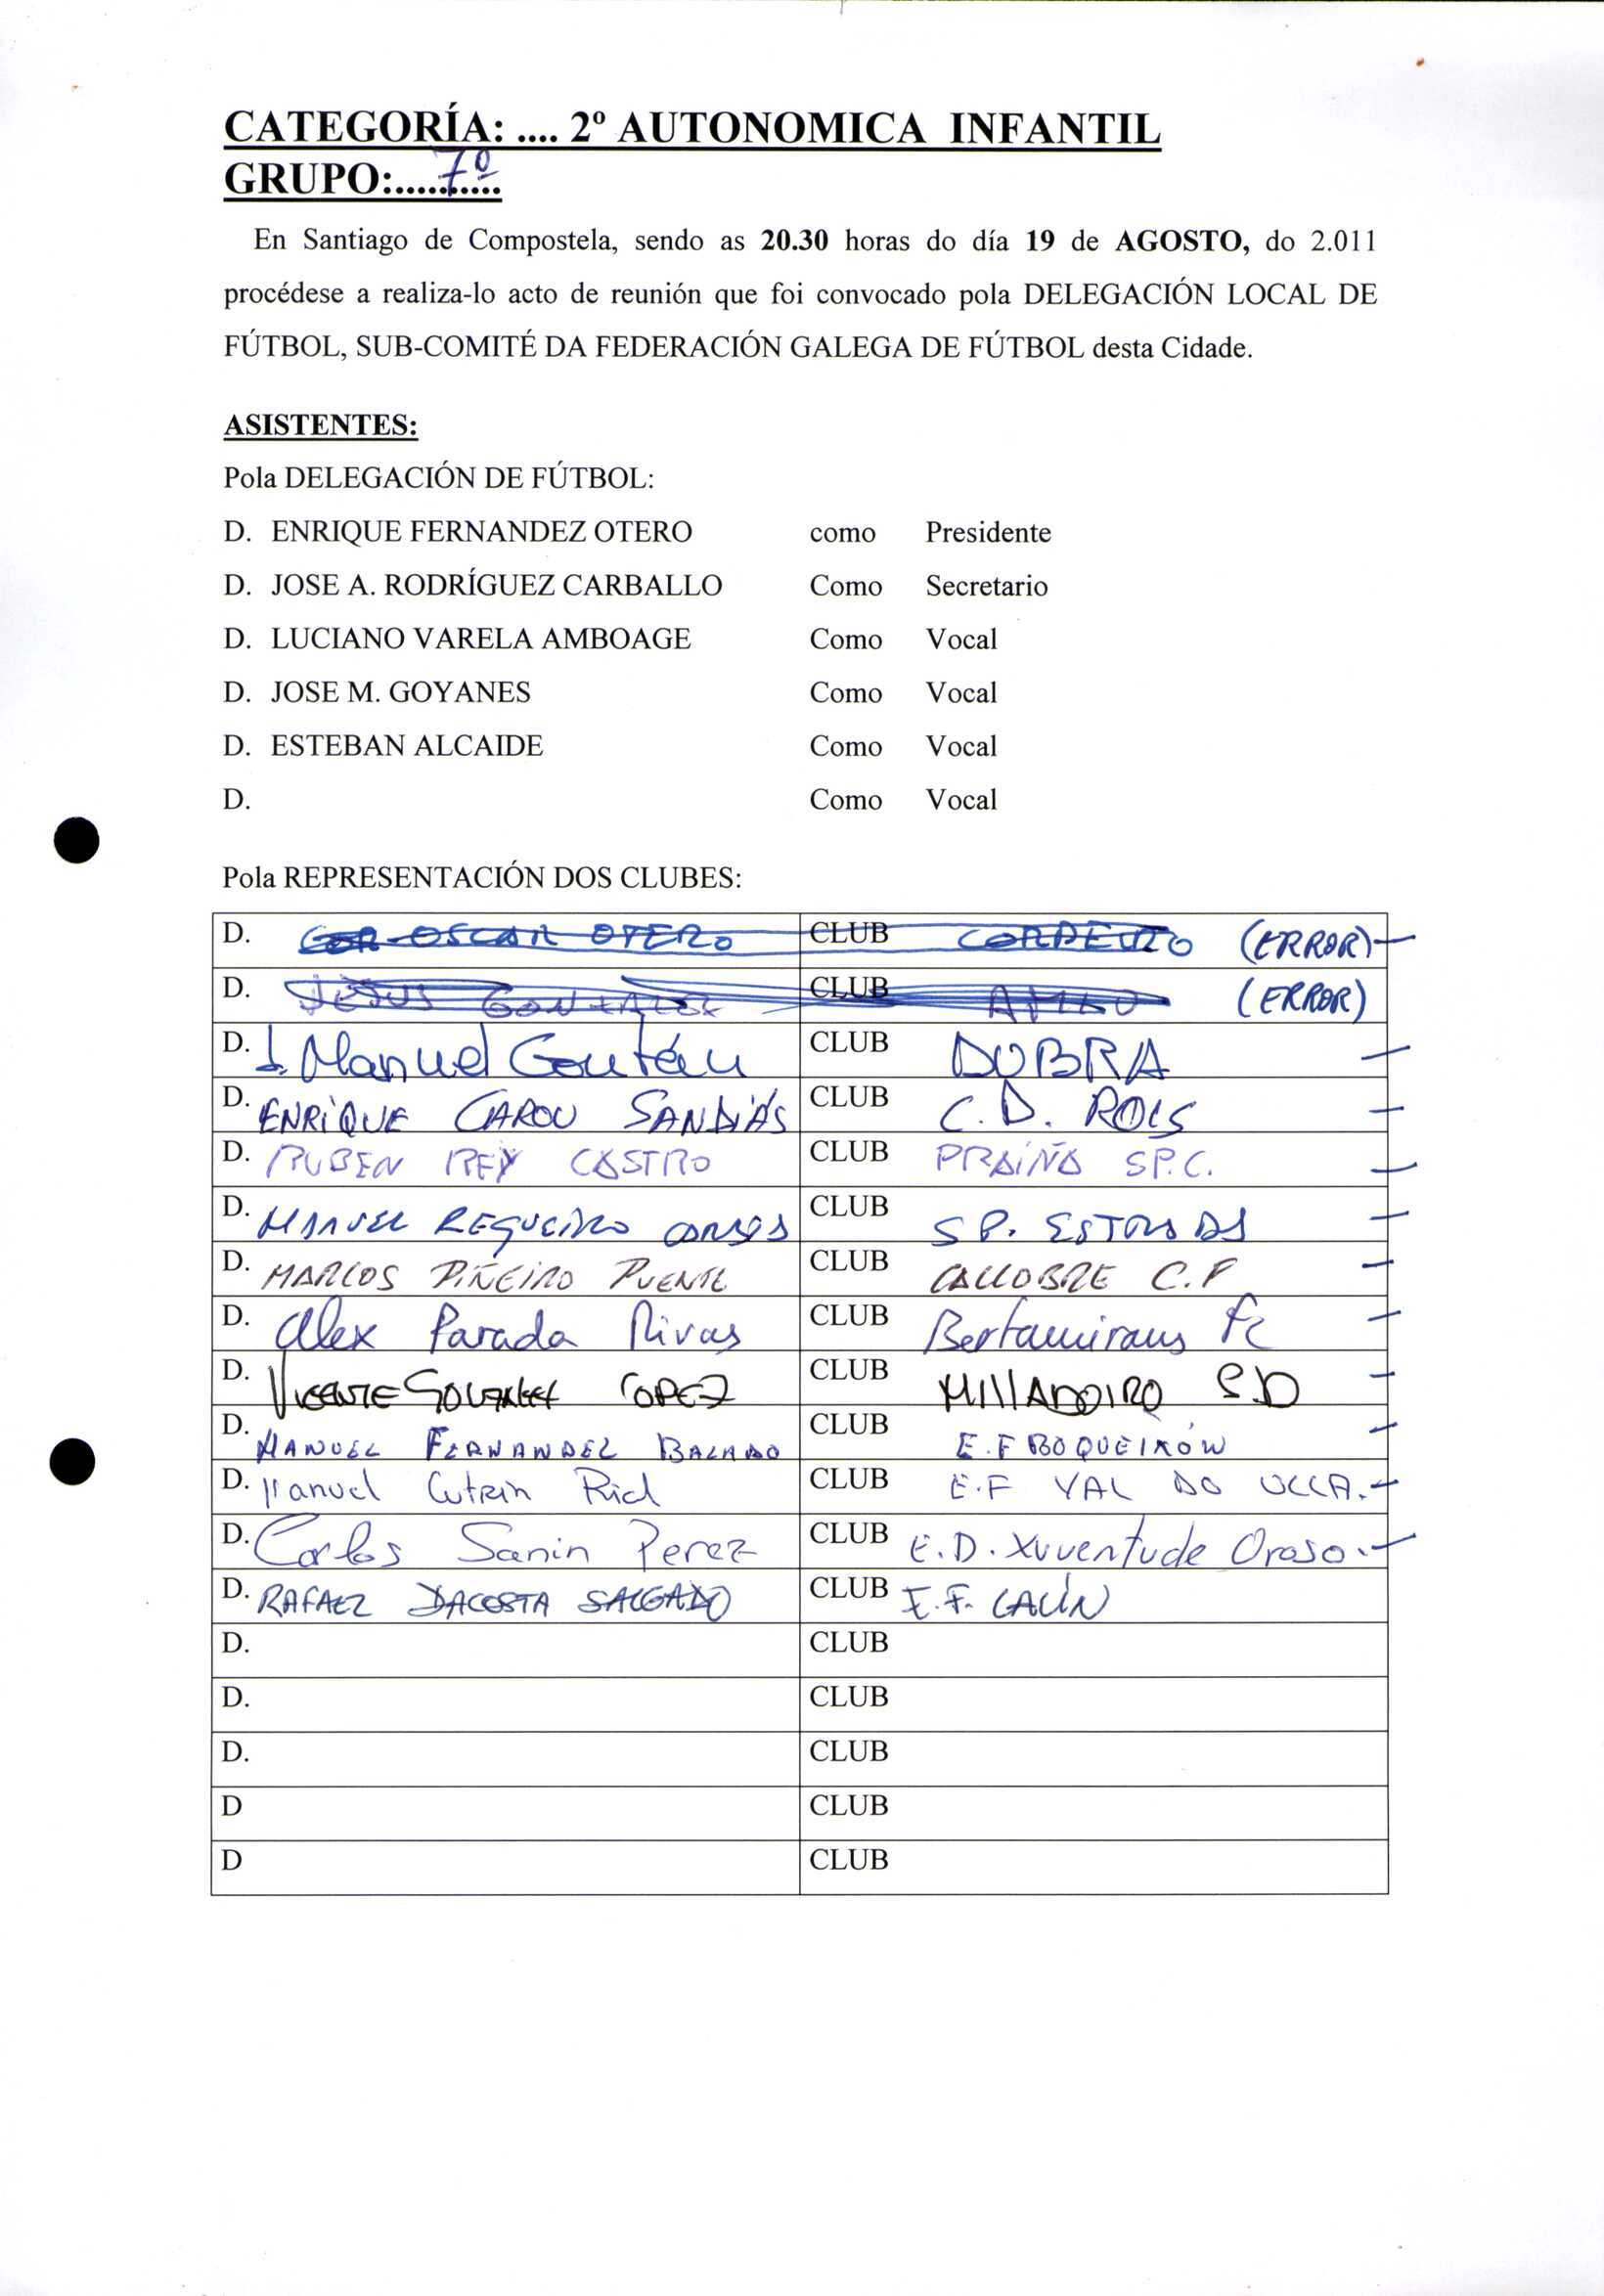 CATEGORÍA: .... 2º AUTONOMICA INFANTIL
GRUPO:.....7º.....
En Santiago de Compostela, sendo as 20.30 horas do día 19 de AGOSTO, do 2.011
procédese a realiza-lo acto de reunión que foi convocado pola DELEGACIÓN LOCAL DE
FÚTBOL, SUB-COMITÉ DA FEDERACIÓN GALEGA DE FÚTBOL desta Cidade.
ASISTENTES:
Pola DELEGACIÓN DE FÚTBOL:
D. ENRIQUE FERNANDEZ OTERO como Presidente
D. JOSE A. RODRÍGUEZ CARBALLO Como Secretario
D. LUCIANO VARELA AMBOAGE Como Vocal
D. JOSE M. GOYANES Como Vocal
D. ESTEBAN ALCAIDE Como Vocal
D. Como Vocal
Pola REPRESENTACIÓN DOS CLUBES:
D. OSCAR OTERO CLUB (ERROR)
D. JESUS GONZALEZ CLUB (ERROR)
D. J. Manuel CLUB DUBRA
D. ENRIQUE CAROU SANDIÁS CLUB C.D. ROIS
D. RUBEN REY CASTRO CLUB PRAIÑA SP.C.
D. MANUEL REGUEIRO CLUB SP. ESTRADA
D. MARCOS PIÑEIRO PUENTE CLUB CALLOBRE C.F
D. Alex Parada Rivas CLUB Bertamirans Fc
D. VICENTE GONZALEZ LOPEZ CLUB MILLADOIRO SD
D. MANUEL FERNANDEZ BALADO CLUB E.F BOQUEIXÓN
D. Manuel Cutrin CLUB E.F VAL DO ULLA.
D. Carlos Sanin Perez CLUB E.D. Xuventude Oroso.
D. RAFAEL DACOSTA SALGADO CLUB E.F. LALÍN
D. CLUB
D. CLUB
D. CLUB
D CLUB
D CLUB